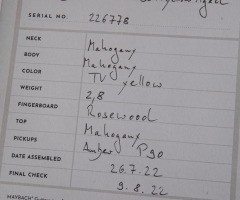 SERIAL NO. 226778
NECK Mahogany
BODY Mahogany
COLOR TV yellow
WEIGHT 2,8
FINGERBOARD Rosewood
TOP Mahogany
PICKUPS Amber P90
DATE ASSEMBLED 26.7.22
FINAL CHECK 9.8.22
MAYBACH®